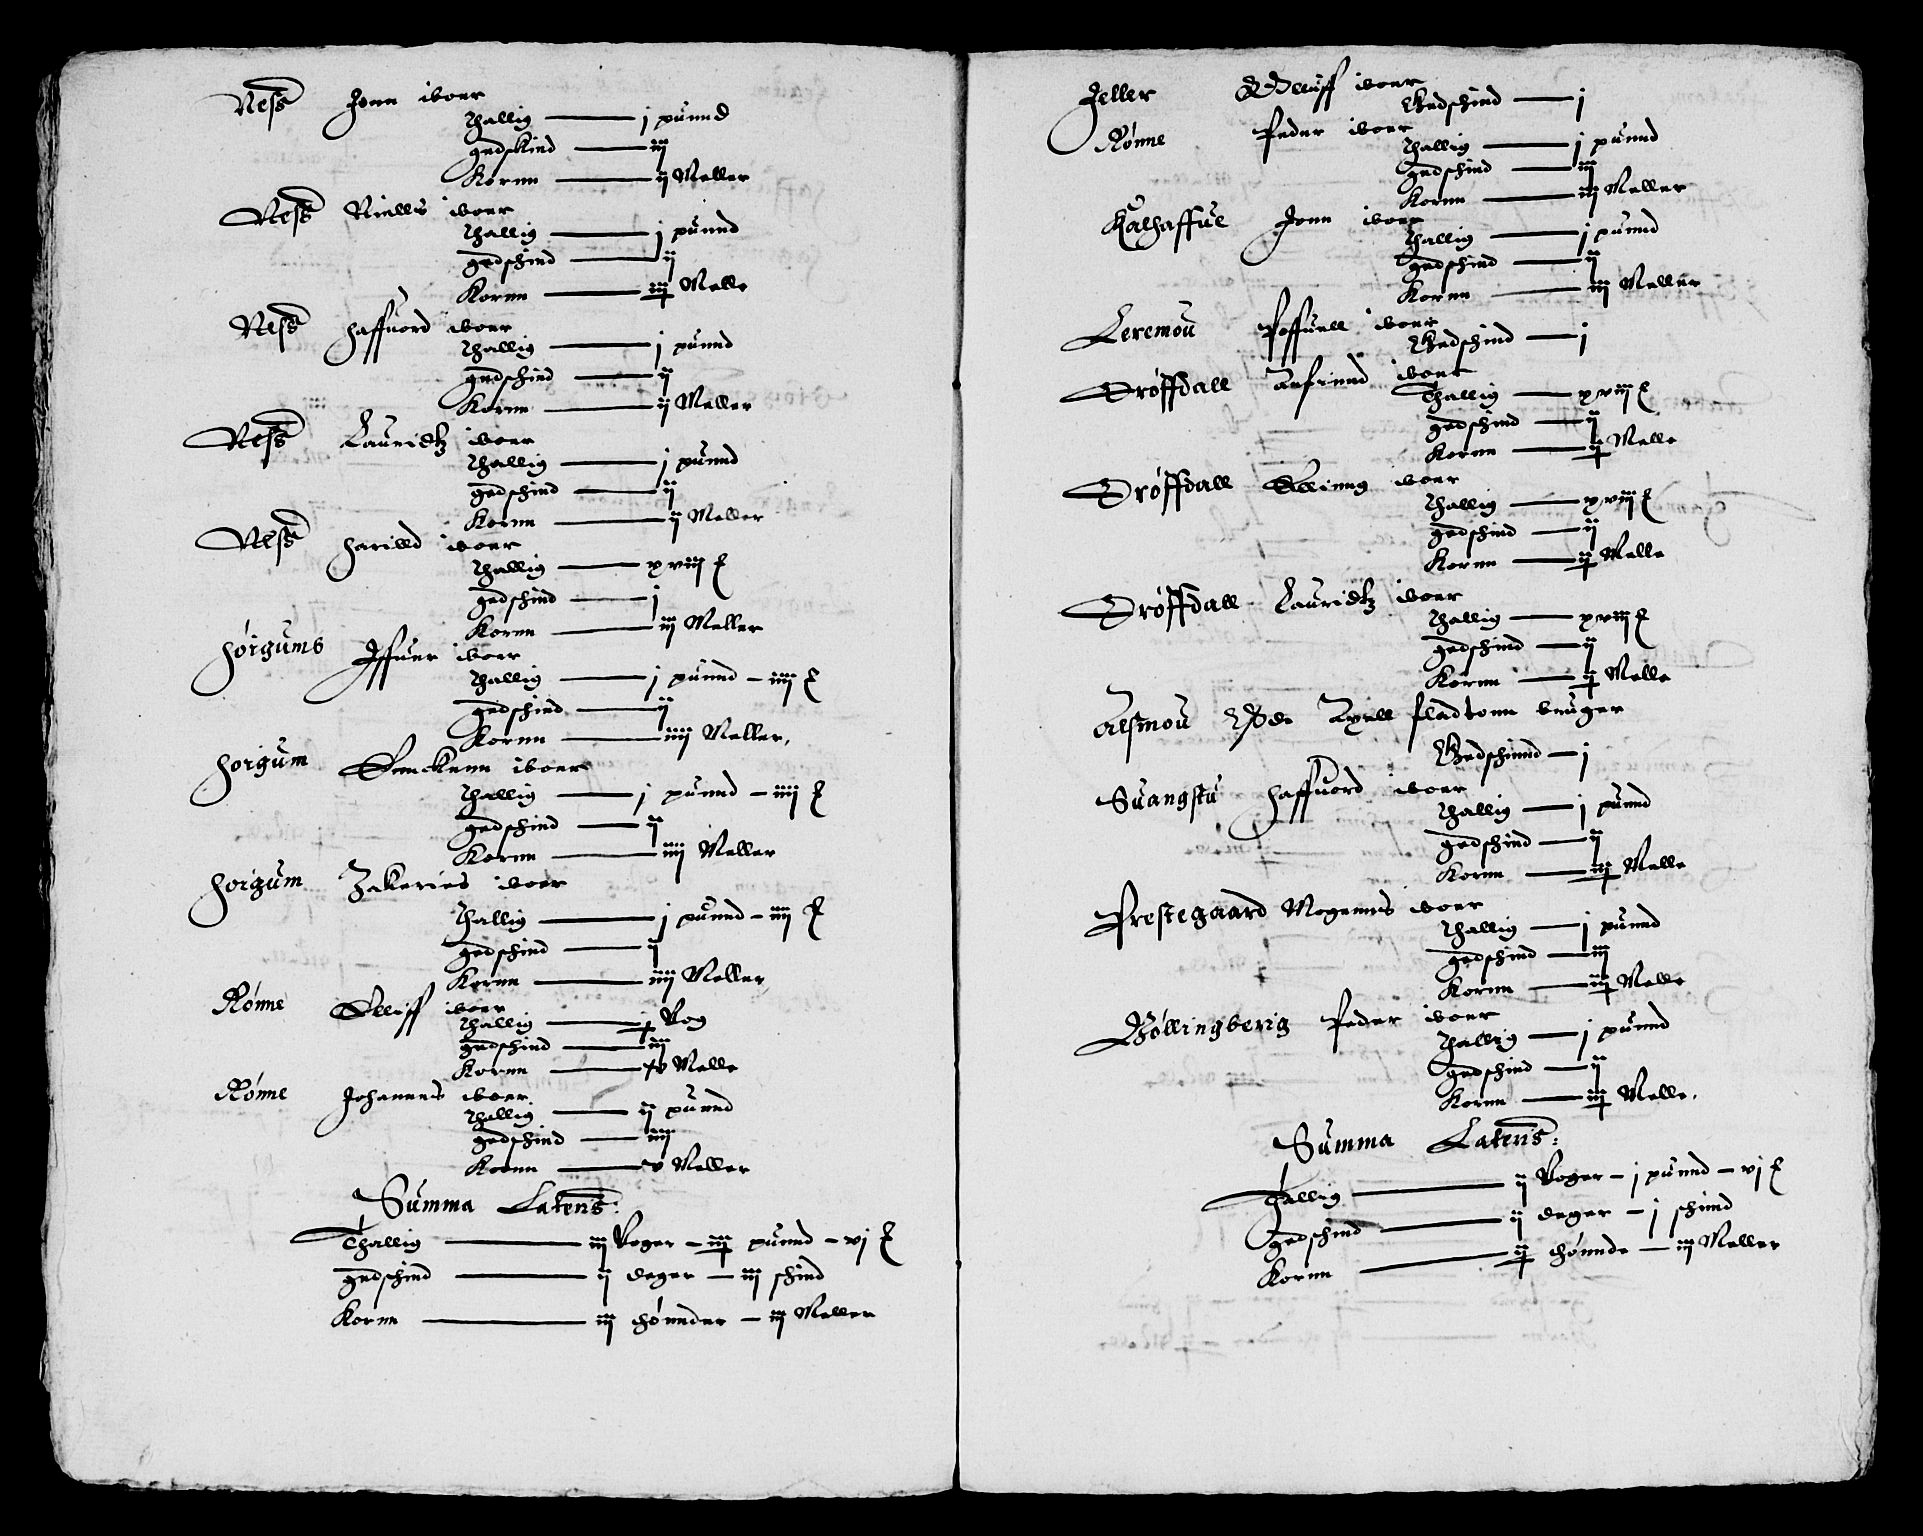 Ness Jonn iboer
Thallig — j puund
gedskind — iij
Kornn — ij Meller
Ness Niells iboer
Thallig — j puund
gedschind — ij
Kornn — iiij Melle
Ness Haffuord iboer
Thallig — j puund
gedschind — ij
Kornn — ij Meller
Ness Lauridtz iboer
Thallig — j puund
gedschind — ij
Kornn — ij Meller
Ness Harilld iboer
Thallig — xviij
gedschind — j
Kornn — iij Meller
Hørgums Iffuer iboer
Thallig — j puund — iiij
gedschind — ij
Kornn — iiij Meller.
Horgum iboer
Thallig — j puund — iiij
gedschind — ij
Kornn — iiij Meller
Horgum Zakeries iboer
Thallig — j puund — iiij
gedschind — ij
Kornn — iiij Meller
Rønne Elliff iboer
Thallig — j Vog
gedschind — iiij
Kornn — v Melle
Rønne Johannes iboer
Thallig — ij puund
gedschind — iiij
Kornn — v Meller
Summa Lateris:
Thallig — iij Voger — iiij puund — vj
gedschind — ij deger — iij schind
Kornn — iij thønnder — iij Meller
Jeller iboer
Gedschind — j
Rønne Peder iboer
Thallig — j puund
gedschind — iij
Kornn — iij Meller
Kalhaffue Jonn iboer
Thallig — j puund
gedschind — ij
Kornn — iij Meller
Leremou Poffuell iboer
Gedschind — j
Drøffdall Anfinnd iboer
Thallig — xviij
gedschind — ij
Kornn — ij Melle
Drøffdall Elling iboer
Thallig — xviij
gedschind — ij
Kornn — ij Melle
Drøffdall Lauridtz iboer
Thallig — xviij
gedschind — ij
Kornn — ij Melle
Alsmou Øde Axell fladtonn bruger
Gedschinnd — j
Suangstu Haffuord iboer
Thallig — j puund
gedschind — ij
Kornn — iij Melle
Prestegaard Mogenns iboer
Thallig — j puund
gedschind — iij
Kornn — iij Melle
Bøllingberig Peder iboer
Thallig — j puund
gedschind — ij
Kornn — iij Melle.
Summa Lateris:
Thallig — ij Voger — j puund — vj
gedschind — ij deger — j schind
Kornn — ij thønnde — iij Meller